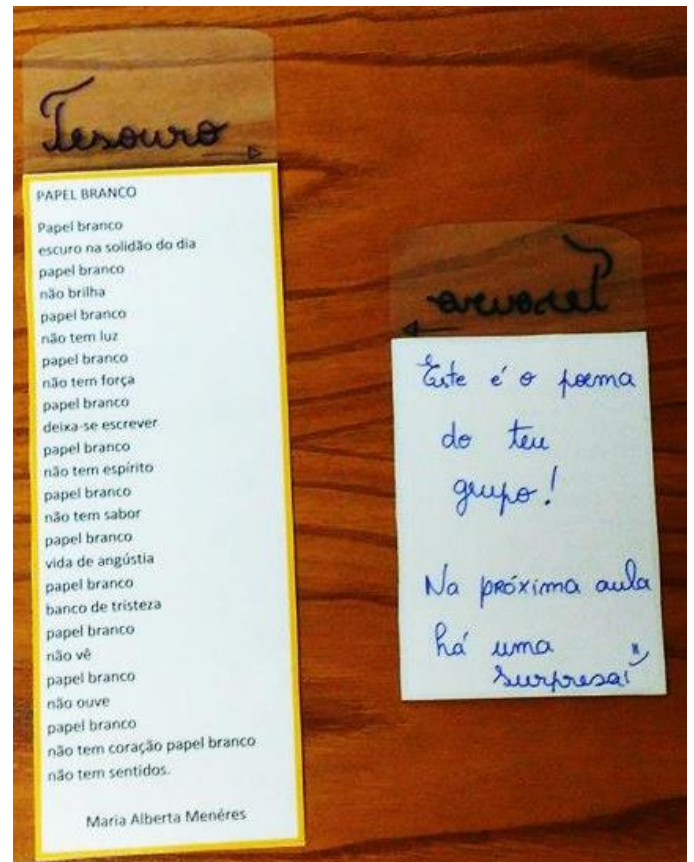 Tesouro
PAPEL BRANCO
Papel branco
escuro na solidão do dia
papel branco
não brilha
papel branco
não tem luz
papel branco
não tem força
papel branco
deixa-se escrever
papel branco
não tem espírito
papel branco
não tem sabor
papel branco
vida de angústia
papel branco
banco de tristeza
papel branco
não vê
papel branco
não ouve
papel branco
não tem coração papel branco
não tem sentidos.
Maria Alberta Menéres
Este é o poema
do teu
grupo!
Na próxima aula
há uma
surpresa!